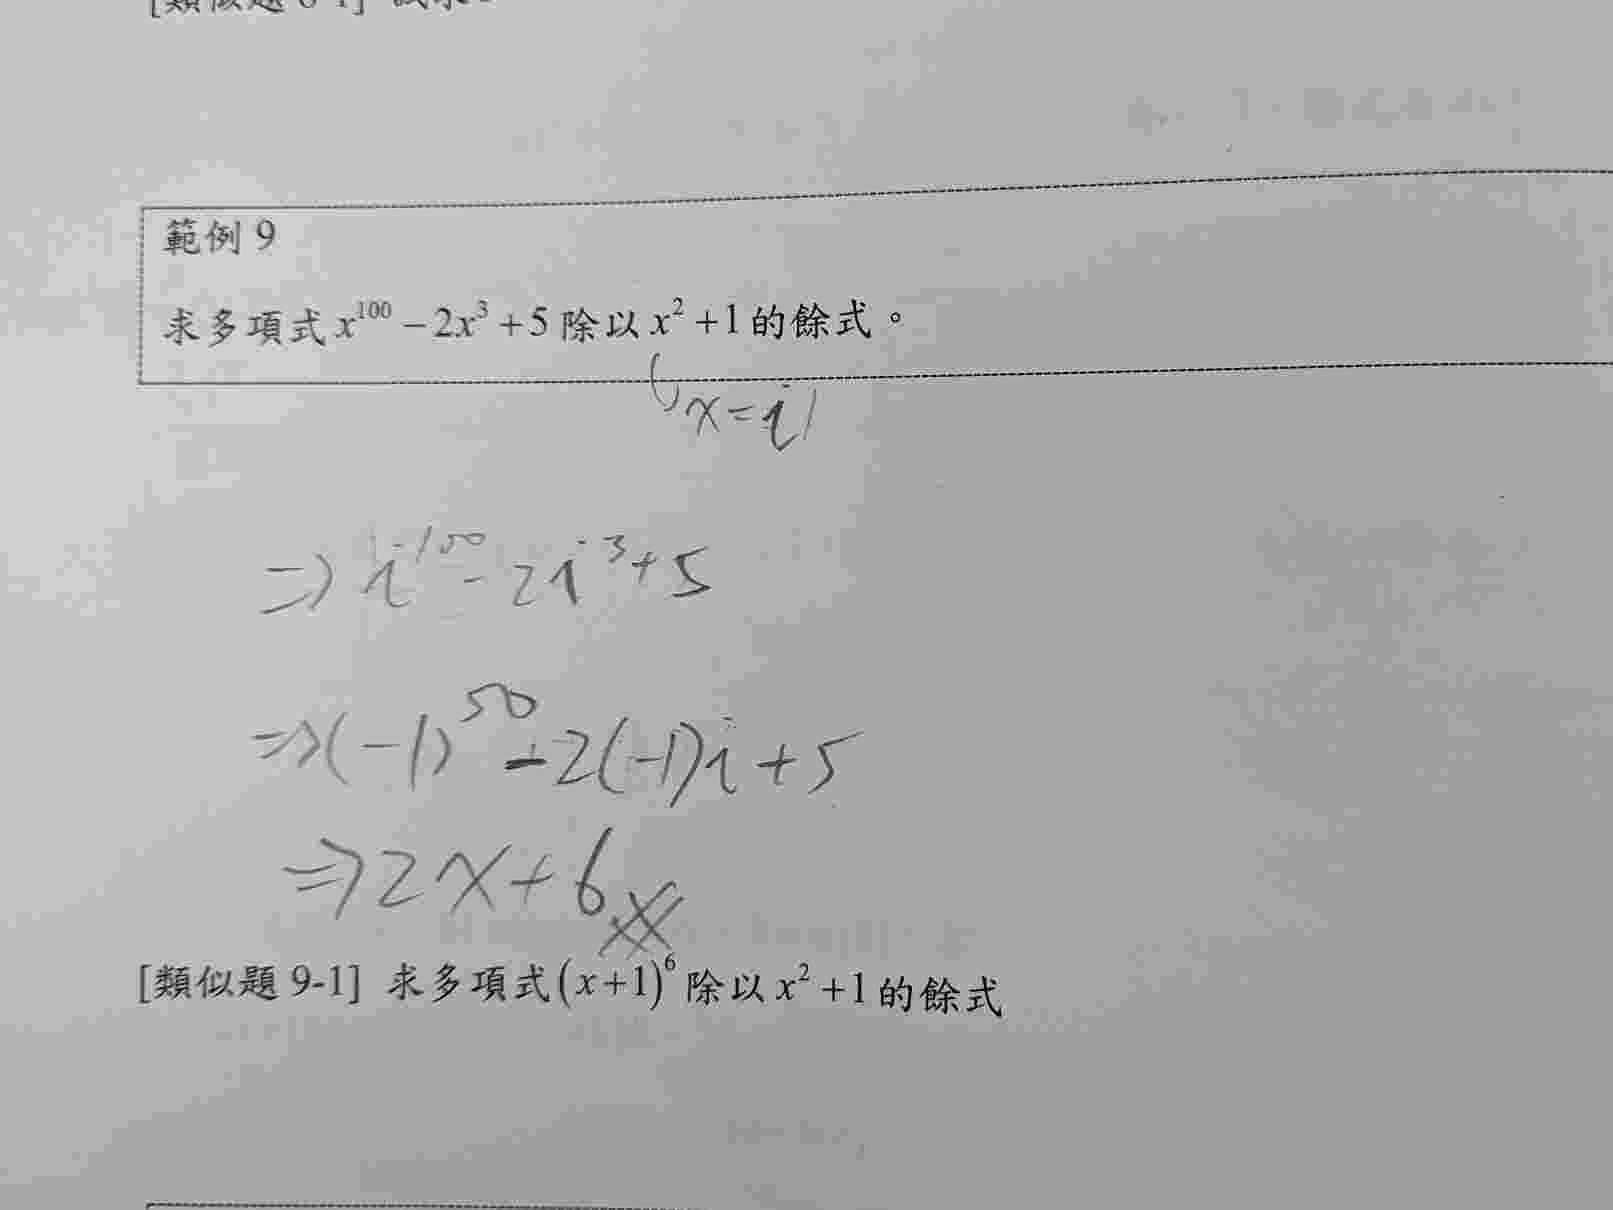 [類似題 8-1] 試求
範例 9
求多項式 x¹⁰⁰ − 2x³ + 5 除以 x² + 1 的餘式。
(x=i)
⇒ i¹⁰⁰ - 2i³ + 5
⇒ (-1)⁵⁰ - 2(-1)i + 5
⇒ 2x + 6
[類似題 9-1] 求多項式 (x+1)⁶ 除以 x² + 1 的餘式